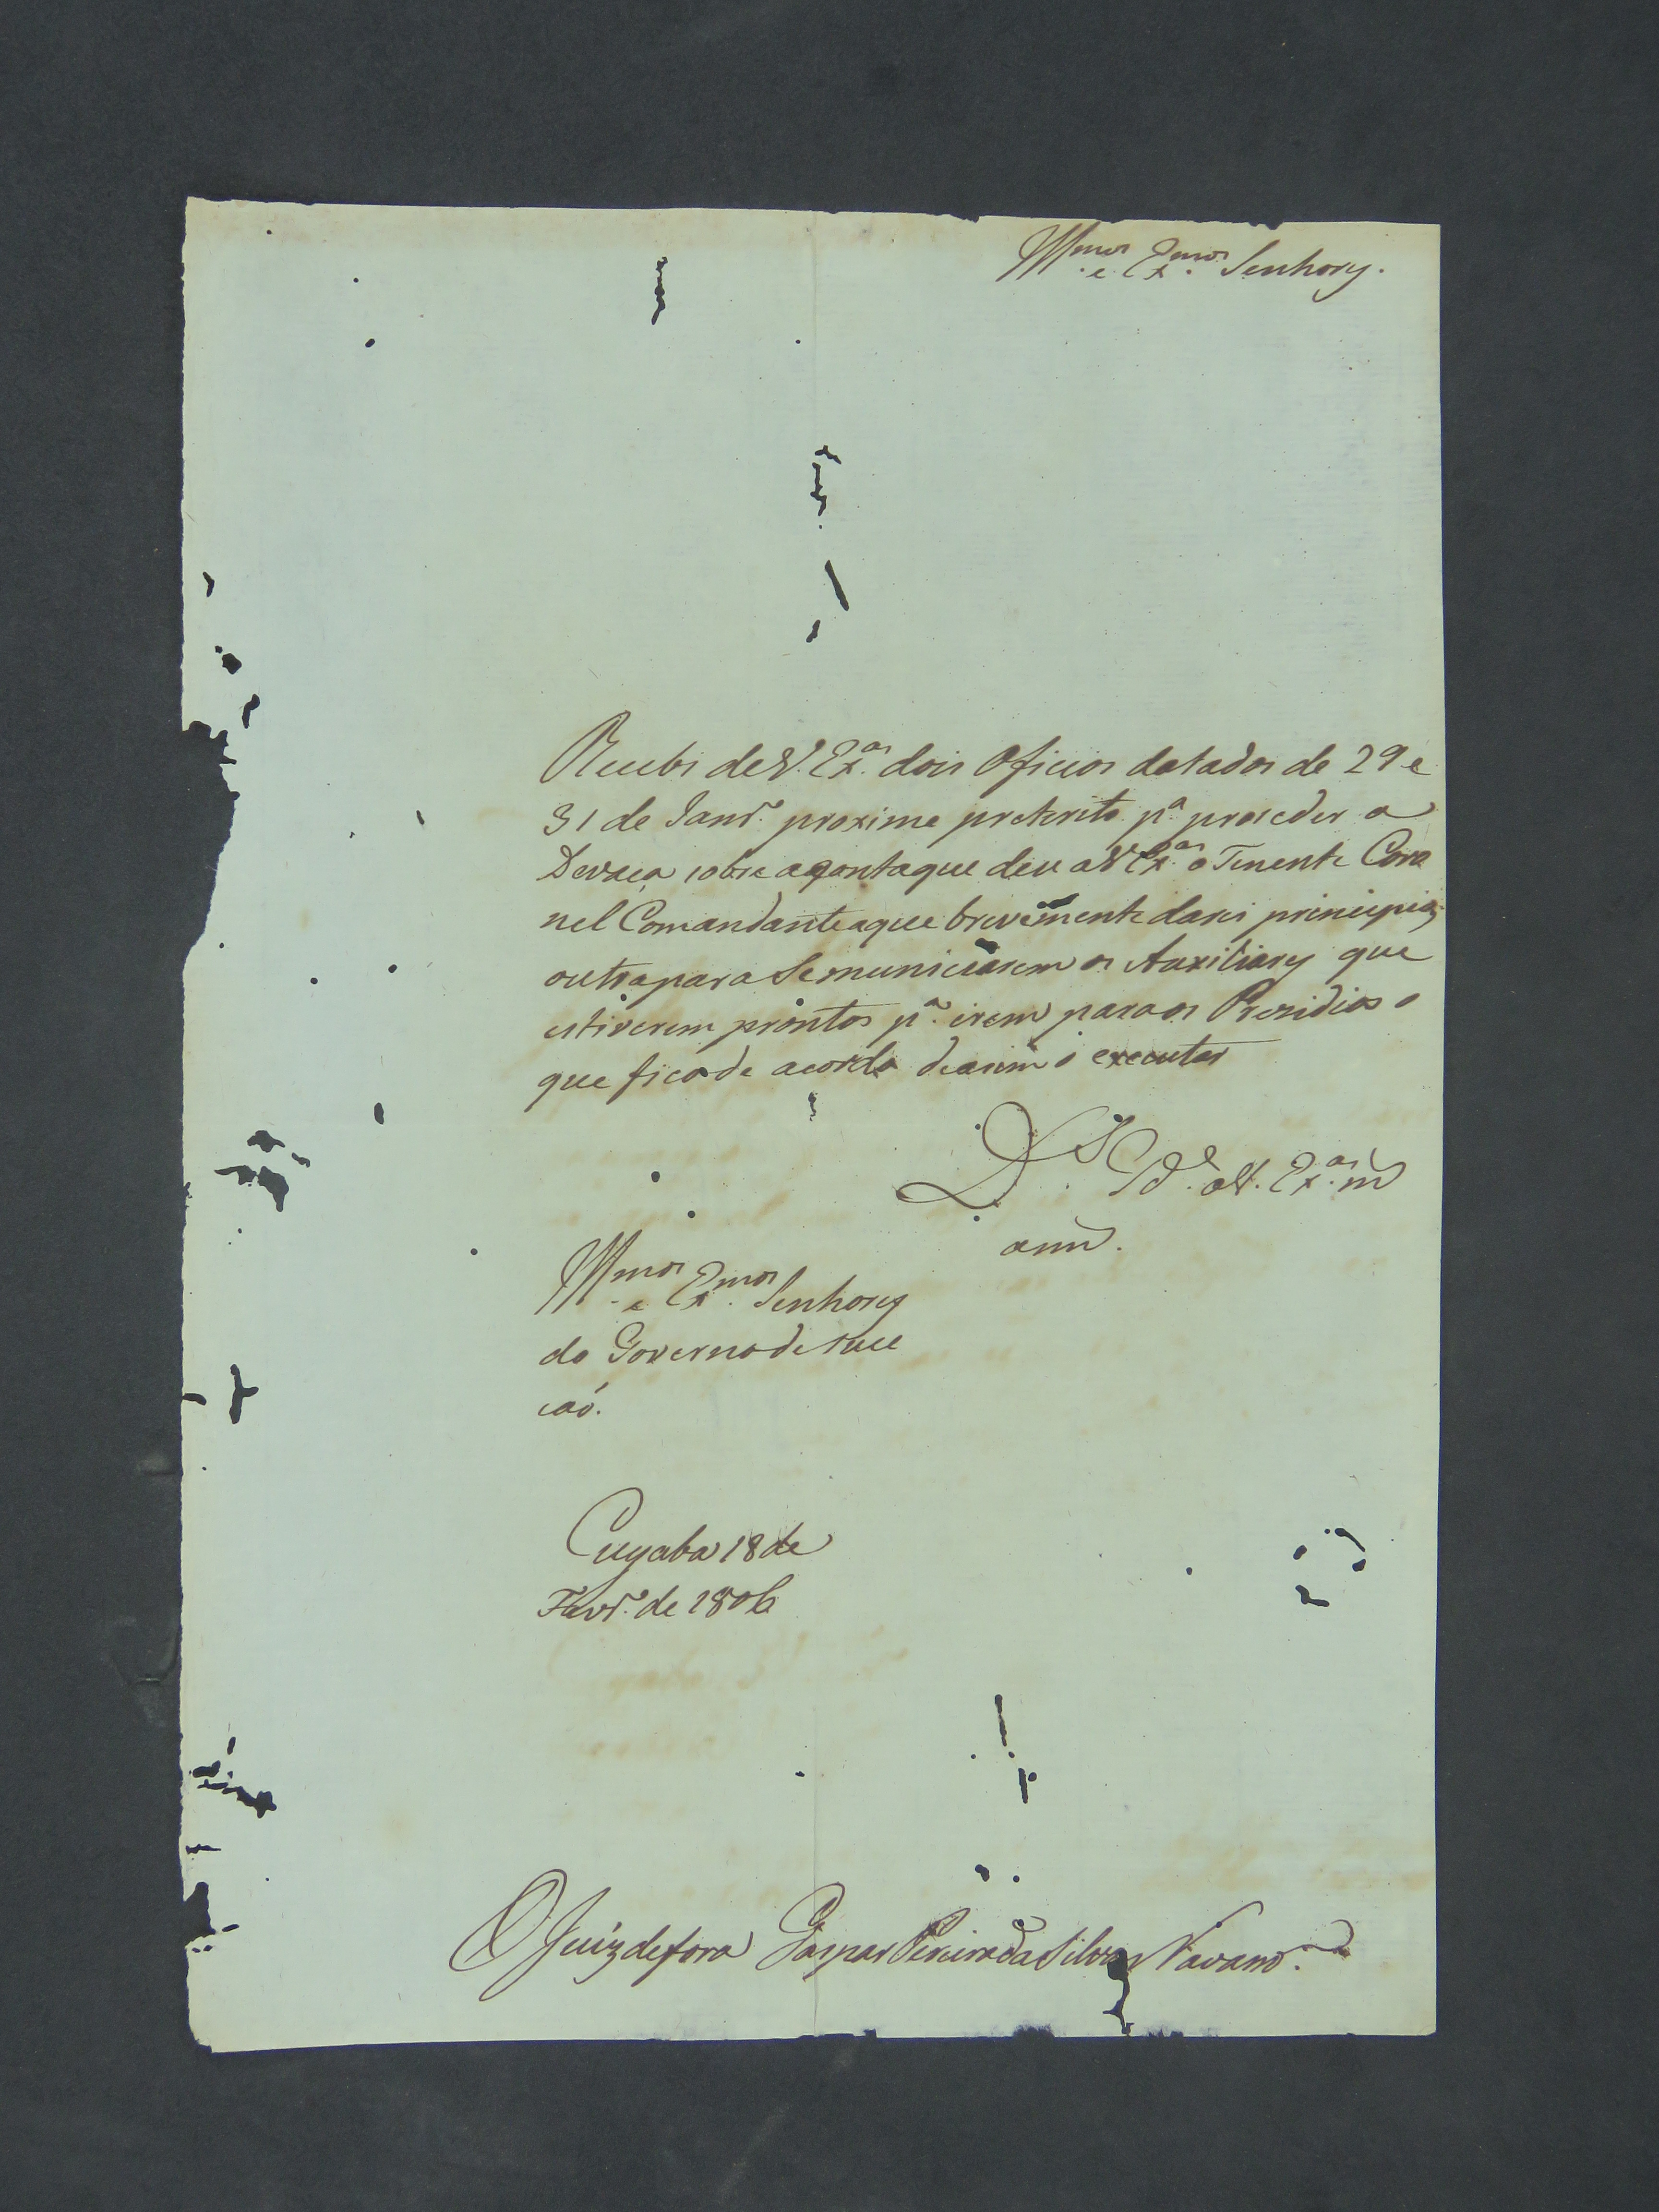 Illmos. e Exmos. Senhores.
Recebi de V. Exas. dois Oficios datados de 29 e
31 de Janro. proximo preterito pa. proceder a
Devaça sobre a conta que deu a V Exas. o Tenente Coro
nel Comandante a que brevemente darei principio,
outro para se municiarem os Auxiliares que
estiverem prontos pa. irem para os Prezidios o
que fico de acordo de asim o executar
Ds. Gde. a V. Exas. ms
anns.
Illmos. e Exmos. Senhores
do Governo de suce
çaó.
Cuyaba 18 de
Favro. de 1806
O Juiz de fora Gaspar Pereira da Silva Navarro.